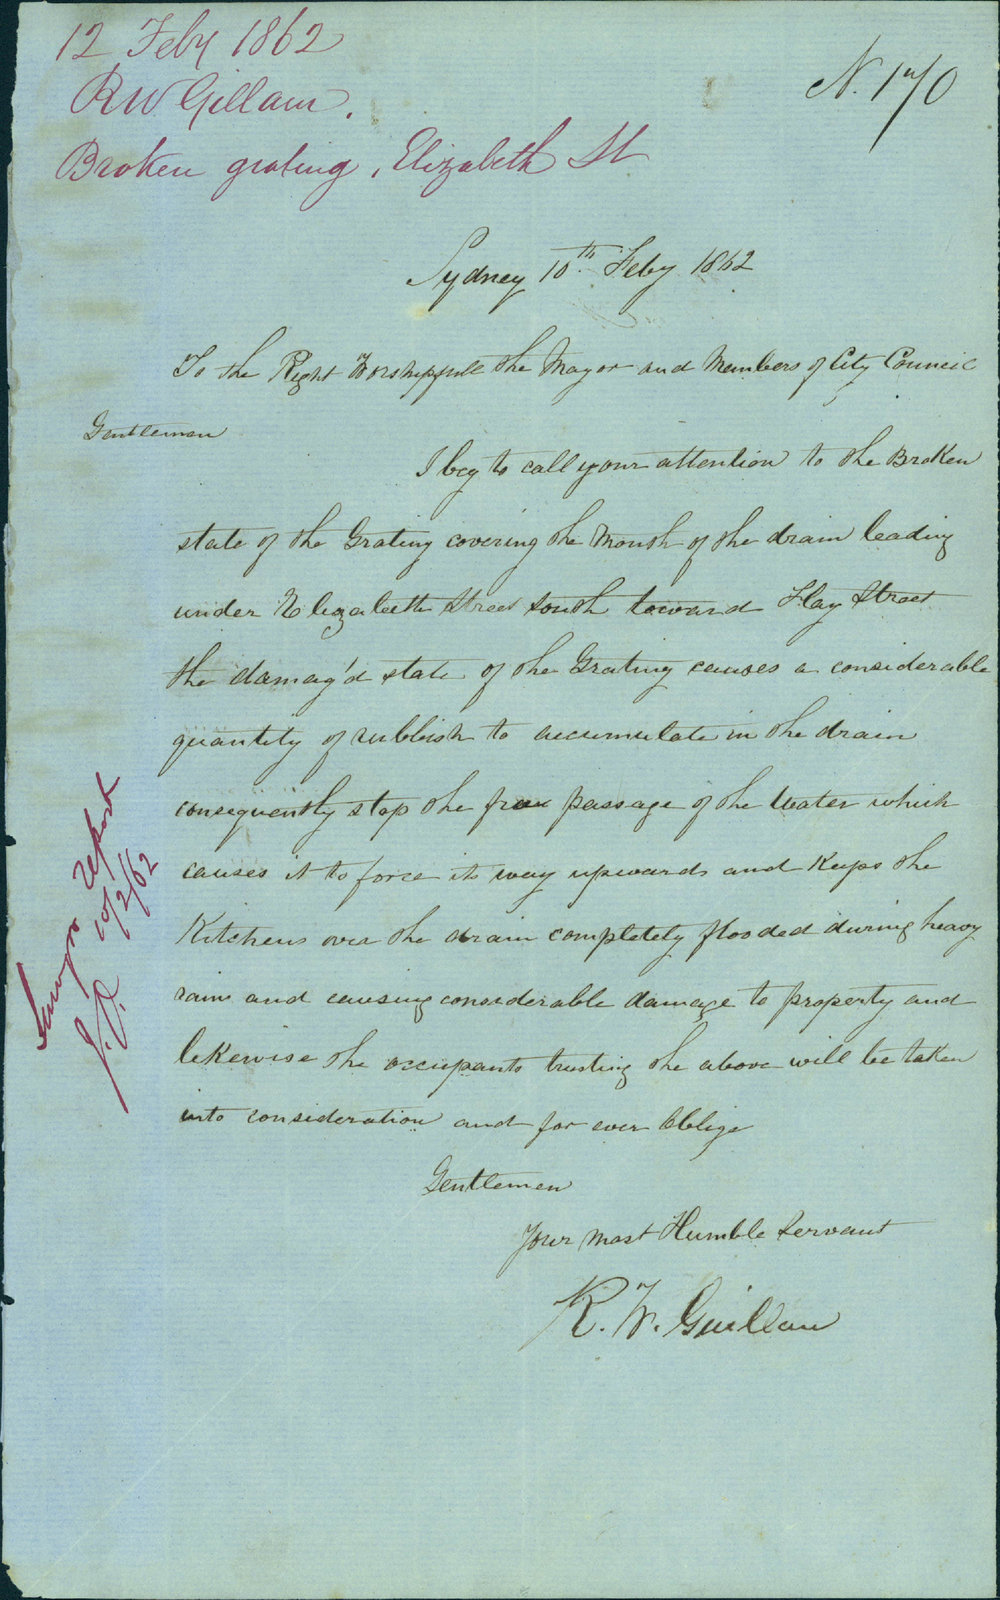 12 Feby 1862
N. 170
RW Gillam.
Broken grating, Elizabeth St
Sydney 10th. Feby 1862
To the Right Worshipfull the Mayor and Members of City Council
Gentlemen
I beg to call your attention to the Broken
state of the Grating covering the Mouth of the drain leading
under Elizabeth Street South toward Hay Street
the damag'd state of the Grating causes a considerable
quantity of rubbish to accumulate in the drain
consequently stop the free passage of the Water which
causes it to force its way upwards and Keeps the
Kitchens over the drain completely flooded during heavy
rain and causing considerable damage to property and
likewise the occupants trusting the above will be taken
into consideration and for ever Oblige
Gentlemen
Your Most Humble Servant
R. W. Guillam
Surveyor report
10/2/62